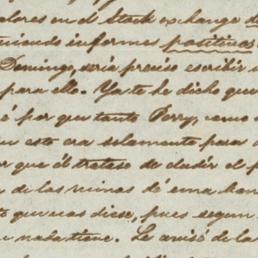 alores en el Stock exchange d
niendo informes positivos
Domingo, será preciso escribir
para ello. Ya te he dicho que
é por que tanto Perry, como
esto era solamente para
que él tratese de eludir el p
de las minas dé una
to que nos diese, pues segun
naba tiene. Le avisé de la